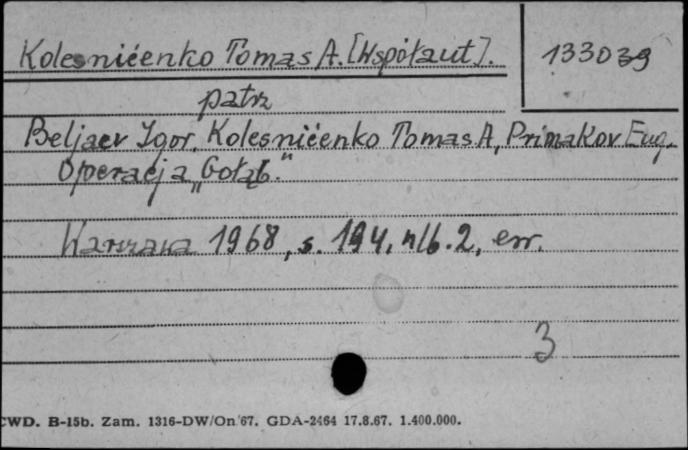 Kolesničenko Tomas A. [Współaut].
133039
patrz
Beljaev Igor, Kolesničenko Tomas A, Primakov Eug.
Operacja „Gołąb."
Warszawa 1968, s. 194, nlb. 2, err.
3
CWD. B-15b. Zam. 1316-DW/On/67. GDA-2464 17.8.67. 1.400.000.